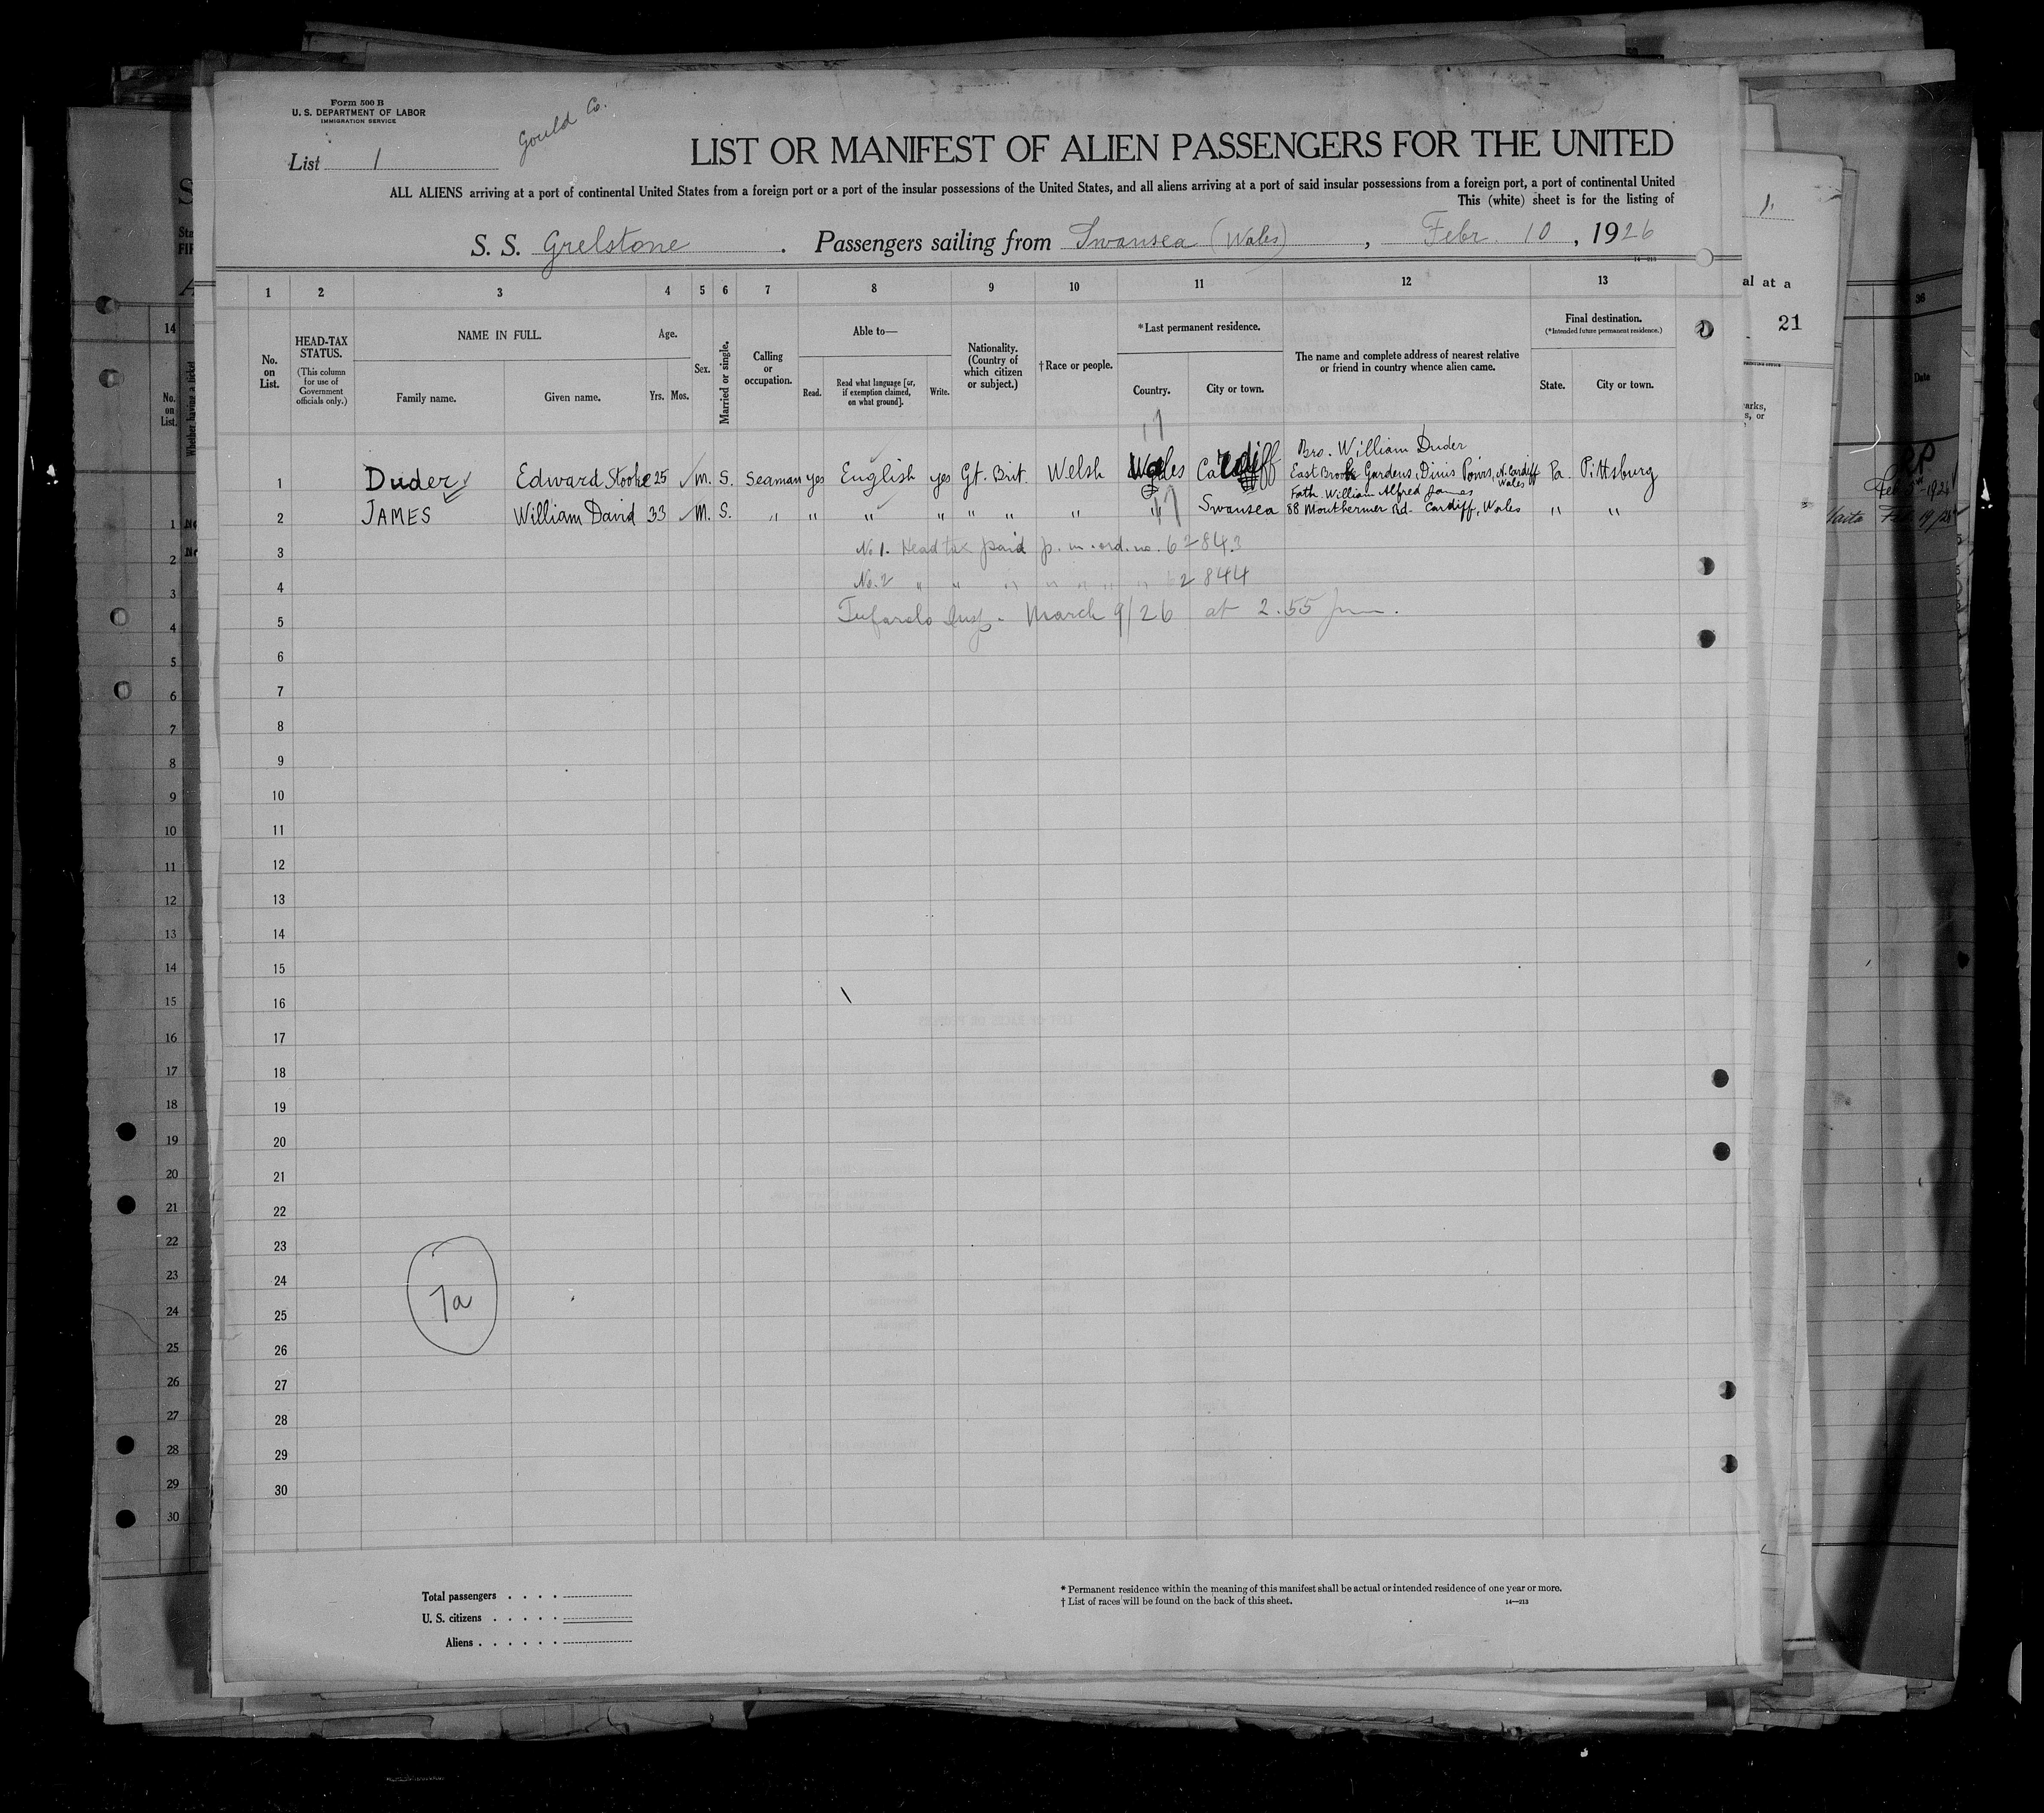 Form 500 B
U. S. DEPARTMENT OF LABOR
IMMIGRATION SERVICE
Gould Co.
List 1
LIST OR MANIFEST OF ALIEN PASSENGERS FOR THE UNITED
ALL ALIENS arriving at a port of continental United States from a foreign port or a port of the insular possessions of the United States, and all aliens arriving at a port of said insular possessions from a foreign port, a port of continental United
This (white) sheet is for the listing of
S. S. Grelstone . Passengers sailing from Swansea (Wales) , Febr. 10 , 1926
14—213
1 2 3 4 5 6 7 8 9 10 11 12 13
No. on List.
HEAD-TAX STATUS.
(This column for use of Government officials only.)
NAME IN FULL.
Family name. Given name.
Age.
Yrs. Mos.
Sex.
Married or single.
Calling or occupation.
Able to—
Read. Read what language [or, if exemption claimed, on what ground]. Write.
Nationality. (Country of which citizen or subject.)
†Race or people.
*Last permanent residence.
Country. City or town.
The name and complete address of nearest relative or friend in country whence alien came.
Final destination.
(*Intended future permanent residence.)
State. City or town.
Bro. William Duder
1 Duder Edward Stooke 25 M. S. Seaman yes English yes Gt. Brit. Welsh Wales Cardiff East Brook Gardens, Dinis Powis, N. Cardiff Wales Pa. Pittsburg
Fath. William Alfred James
2 JAMES William David 33 M. S. " " " " " " " " Swansea 88 Monthermer Rd. Cardiff, Wales " "
3 No 1. Head tax paid p. m. ord. no. 62843
4 No. 2 " " " " " " " 2844
5 Insp. March 9/26 at 2.55 pm.
6
7
8
9
10
11
12
13
14
15
16
17
18
19
20
21
22
23
24
25
26
27
28
29
30
7a
Total passengers
U. S. citizens
Aliens
* Permanent residence within the meaning of this manifest shall be actual or intended residence of one year or more.
† List of races will be found on the back of this sheet.
14—213
14
No. on List.
Whether having a ticket
1
2
3
4
5
6
7
8
9
10
11
12
13
14
15
16
17
18
19
20
21
22
23
24
25
26
27
28
29
30
al at a
21
36
Date